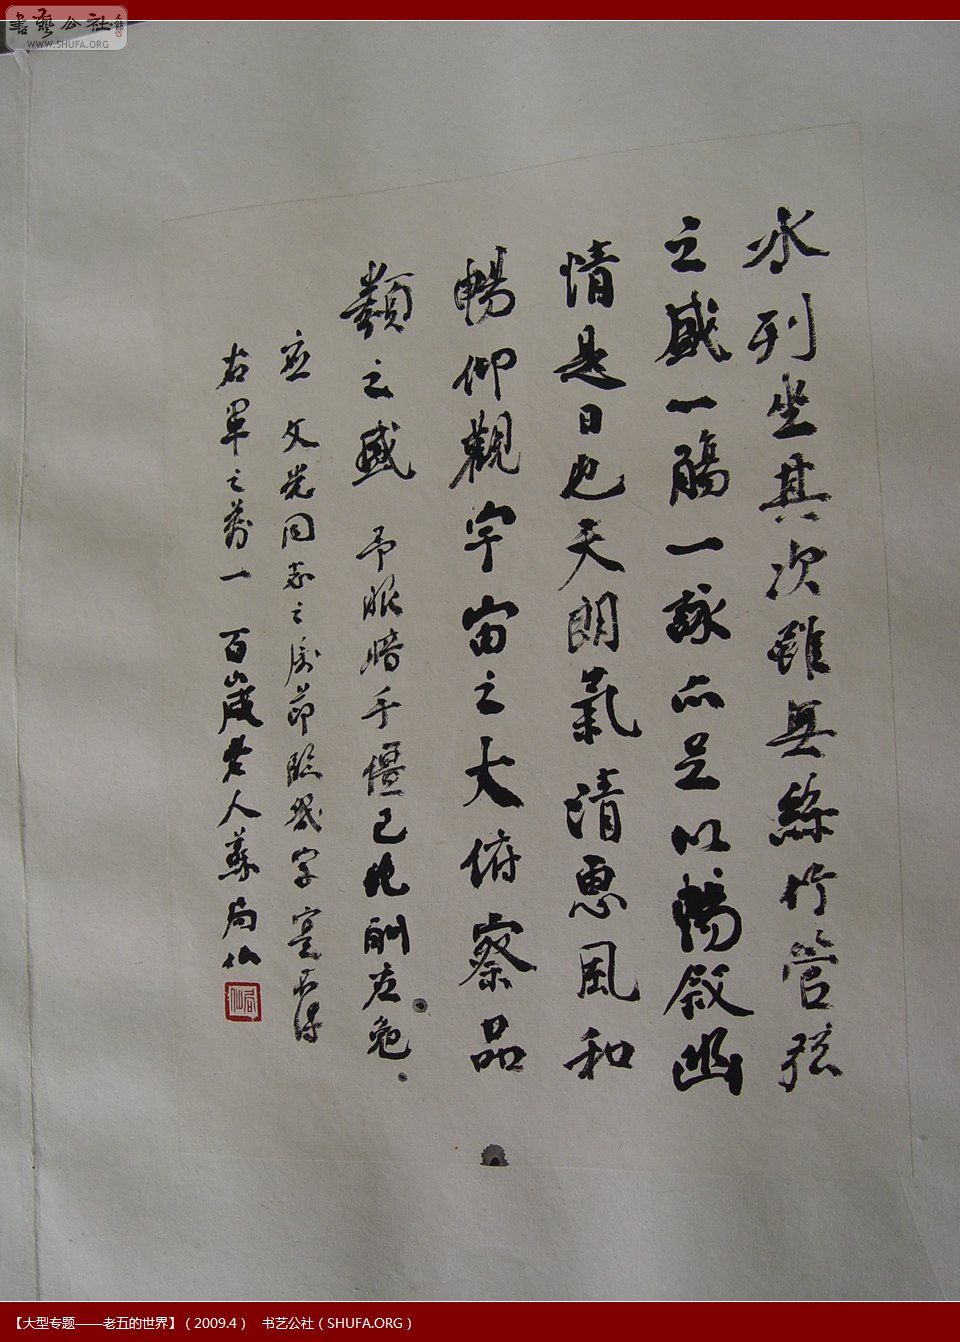 書藝公社
WWW.SHUFA.ORG
水列坐其次雖無絲竹管弦
之盛一觴一詠亦足以暢敘幽
情是日也天朗氣清惠風和
暢仰觀宇宙之大俯察品
類之盛 予眼暗手僵已酬应勉
应 文光同志之属節臨幾字寔不得
右軍之萬一 百歲老人蘇局仙
局仙
【大型专题——老五的世界】（2009.4） 书艺公社（SHUFA.ORG）